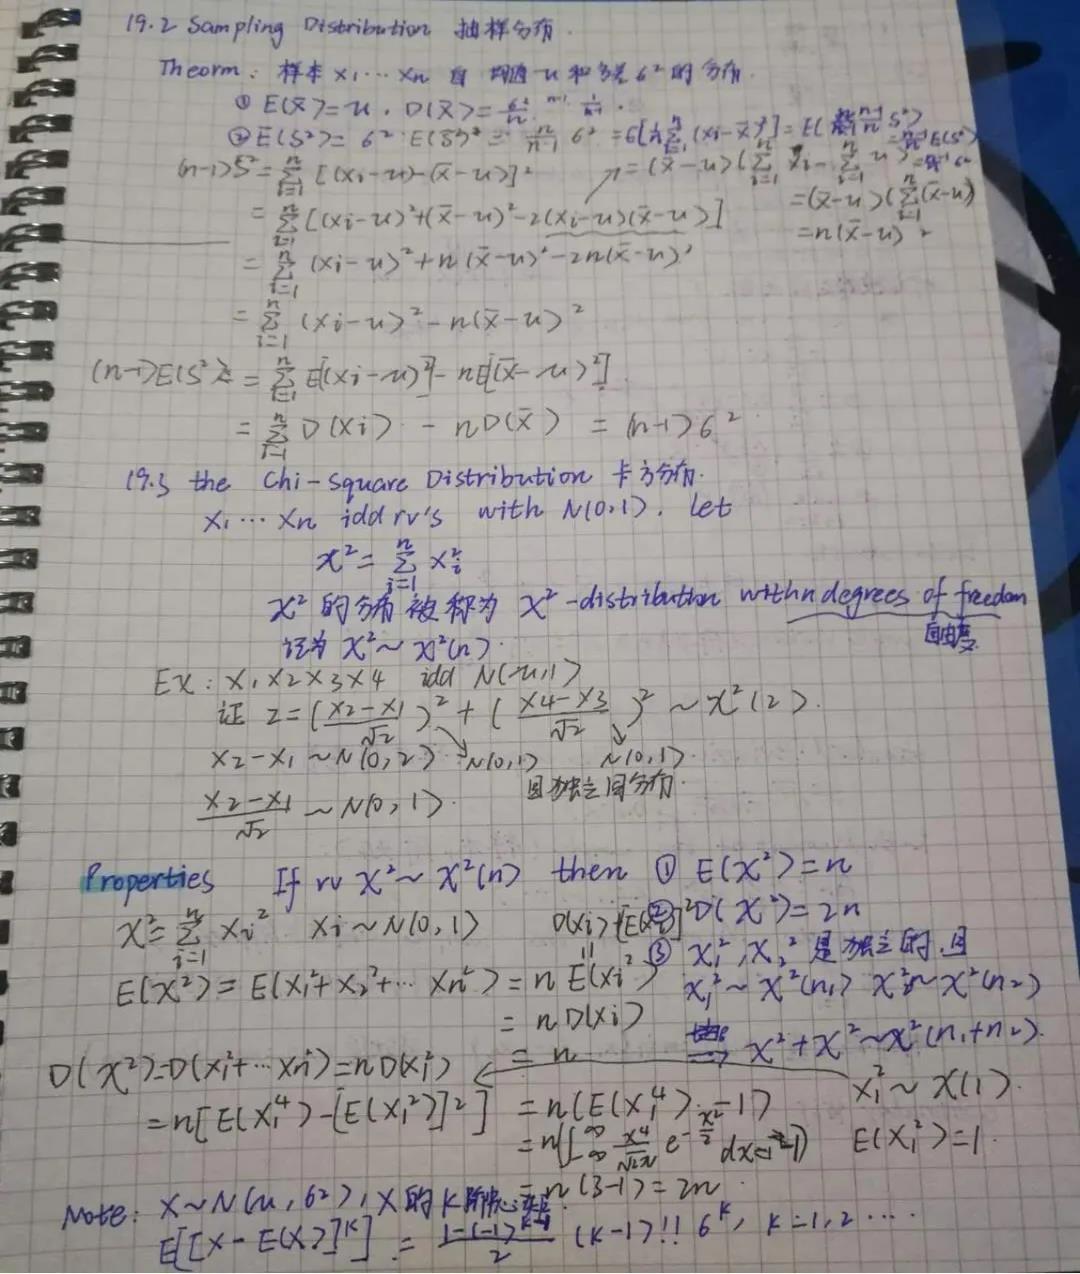 19.2 Sampling Distribution 抽样分布.
Theorm: 样本 x₁…xn 自 均值 u 和方差 6² 的分布.
① E(x̄)=u . D(x̄)=6²/n
② E(S²)=6²
(n-1)S²=∑ᵢ₌₁ⁿ[(xi-u)-(x̄-u)]²
=(x̄-u)(∑ᵢ₌₁ⁿ xi-∑ᵢ₌₁ⁿ u)
=∑ᵢ₌₁ⁿ[(xi-u)²+(x̄-u)²-2(xi-u)(x̄-u)]
=(x̄-u)(∑ᵢ₌₁ⁿ(x̄-u)
=n(x̄-u)²
=∑ᵢ₌₁ⁿ(xi-u)²+n(x̄-u)²-2n(x̄-u)²
=∑ᵢ₌₁ⁿ(xi-u)²-n(x̄-u)²
(n-1)E(S²)=∑ᵢ₌₁ⁿE[(xi-u)²]-nE[(x̄-u)²]
=∑ᵢ₌₁ⁿD(xi)-nD(x̄)=(n-1)6²
19.3 the Chi-Square Distribution 卡方分布.
x₁…xn idd rv's with N(0,1). Let
x²=∑ᵢ₌₁ⁿxᵢ²
x²的分布被称为x²-distribution with n degrees of freedom
自由度
记为 x²~x²(n).
Ex: x₁x₂x₃x₄ idd N(u,1)
证 z=((x₂-x₁)/√2)²+((x₄-x₃)/√2)²~x²(2).
x₂-x₁~N(0,2) N(0,1) N(0,1)
(x₂-x₁)/√2~N(0,1). 且独立同分布.
Properties If rv x²~x²(n) then ① E(x²)=n
x²=∑ᵢ₌₁ⁿxi² xi~N(0,1) D(xi)+[E(xi)]² ② D(x²)=2n
③ x₁²,x₂²是独立的,且
E(x²)=E(x₁²+x₂²+…xn²)=nE(xi²) x₁²~x²(n₁) x₂²~x²(n₂)
=nD(xi)
⇒ x²+x²~x²(n₁+n₂).
=n
D(x²)=D(x₁²+…xn²)=nD(x₁²) x₁²~x(1).
=n[E(x₁⁴)-[E(x₁²)]²] =n(E(x₁⁴)-1)
E(x₁²)=1.
=n(∫₋∞^∞ x⁴/√2π e^(-x²/2) dx-1)
=n(3-1)=2n
Note: x~N(u,6²),x的k阶中心矩
E[[x-E(x)]ᵏ]=(1-(-1)ᵏ⁻¹)/2 (k-1)!!6ᵏ, k=1,2….